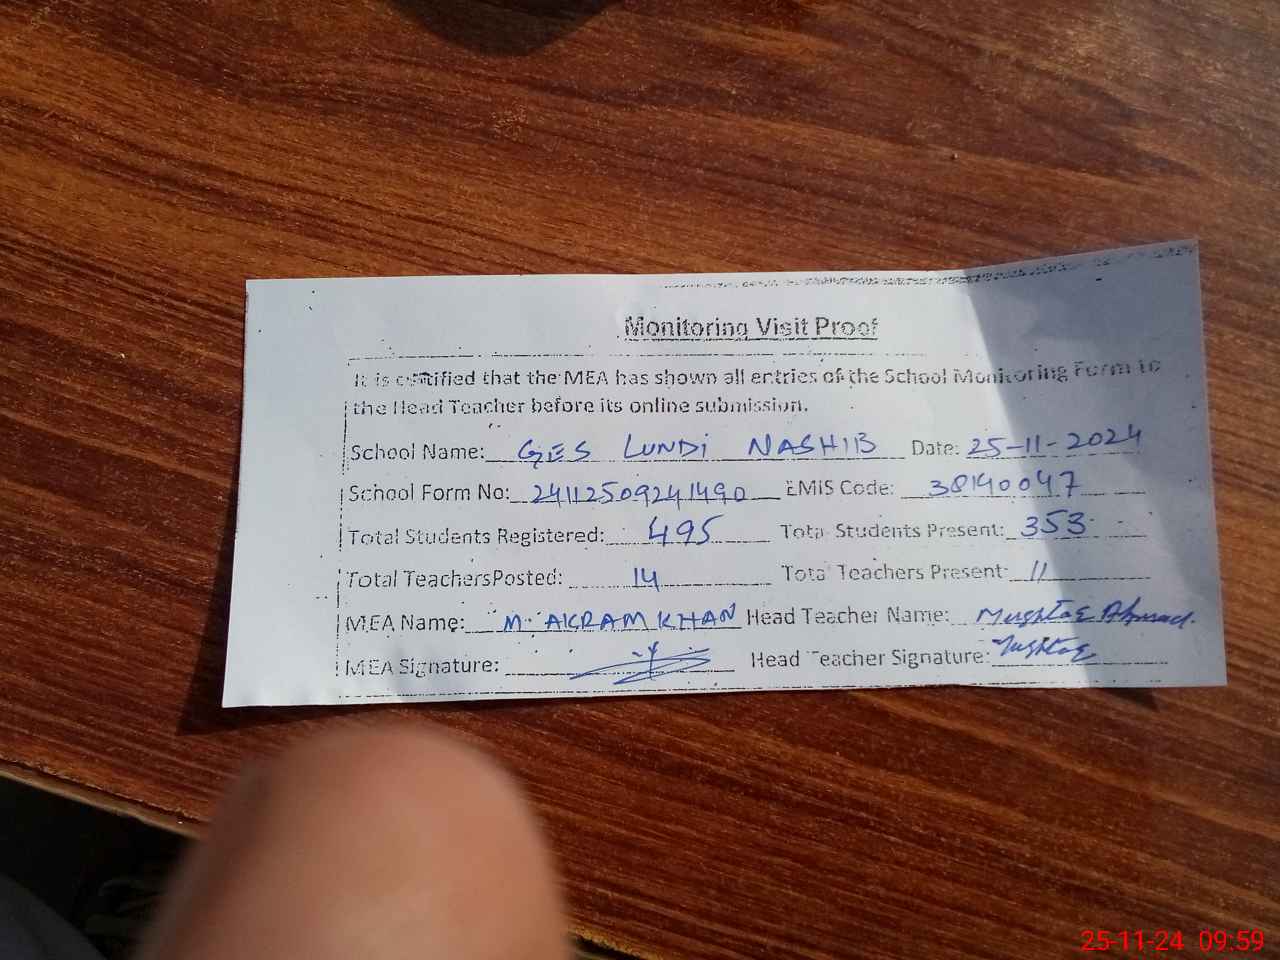 Monitoring Visit Proof
It is certified that the MEA has shown all entries of the School Monitoring Form to
the Head Teacher before its online submission.
School Name: GES LUNDi NASHIB Date: 25-11-2024
School Form No: 24112509241490 EMIS Code: 38140047
Total Students Registered: 495 Total Students Present: 353
Total TeachersPosted: 14 Total Teachers Present: 11
MEA Name: M. AKRAM KHAN Head Teacher Name: Mushtaq Ahmad.
MEA Signature: Head Teacher Signature: Mushtaq
25-11-24 09:59